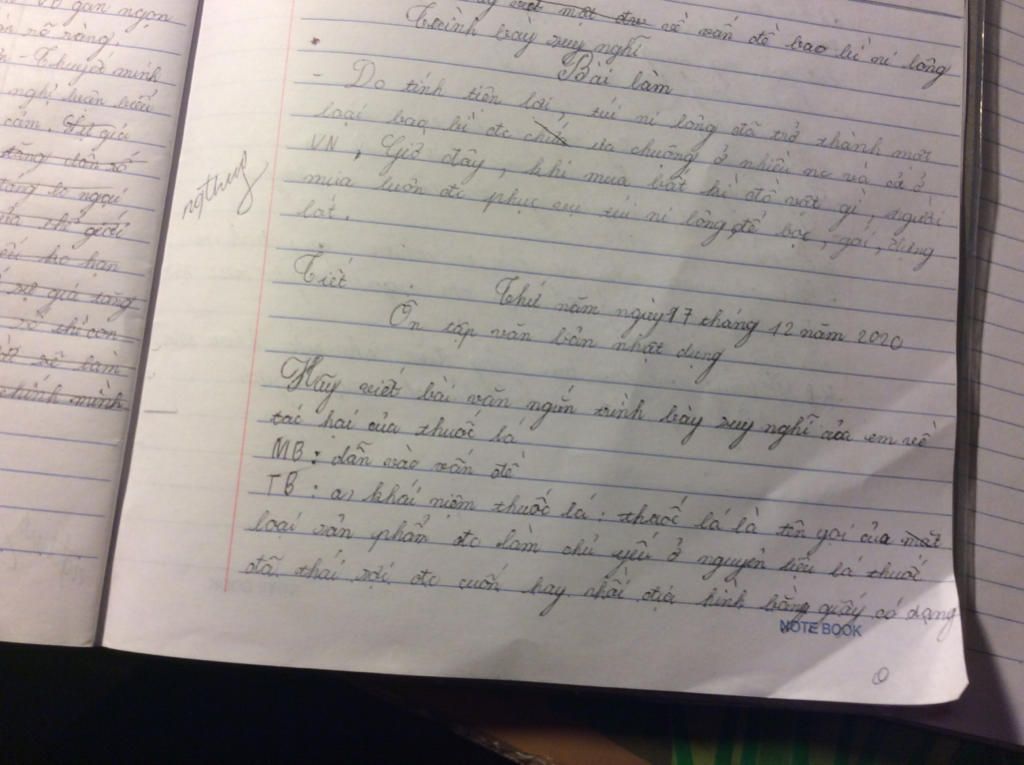 vỡ gắn ngọn
rõ ràng.
- Thuyết minh
nghị luận biểu
cảm. Sự gia
tăng dân số
thế giới
hạn
sự gia tăng
thì con
sẽ làm
chính mình
viết một đv về vấn đề bao bì ni lông
Trình bày suy nghĩ
Bài làm
- Do tính tiện lợi, túi ni lông đã trở thành một
loại bao bì đc ưa chuộng ở nhiều nc và cả ở
VN, Giờ đây, khi mua bất kì đồ vật gì, người
mua luôn đc phục vụ túi ni lông để bọc, gói, đựng
lót.
Tiết
Thứ năm ngày 17 tháng 12 năm 2020
Ôn tập văn bản nhật dụng
Hãy viết bài văn ngắn trình bày suy nghĩ của em về
tác hại của thuốc lá
MB: dẫn vào vấn đề
TB: a, khái niệm thuốc lá: thuốc lá là tên gọi của một
loại sản phẩm đc làm chủ yếu ở nguyên liệu lá thuốc
đã thái sợi đc cuốn hay nhồi định hình bằng giấy có dạng
NOTE BOOK